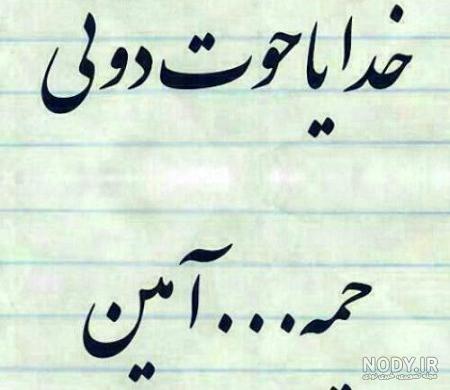 خدایا حوت دونی
حمه . . . آمین
NODY.IR